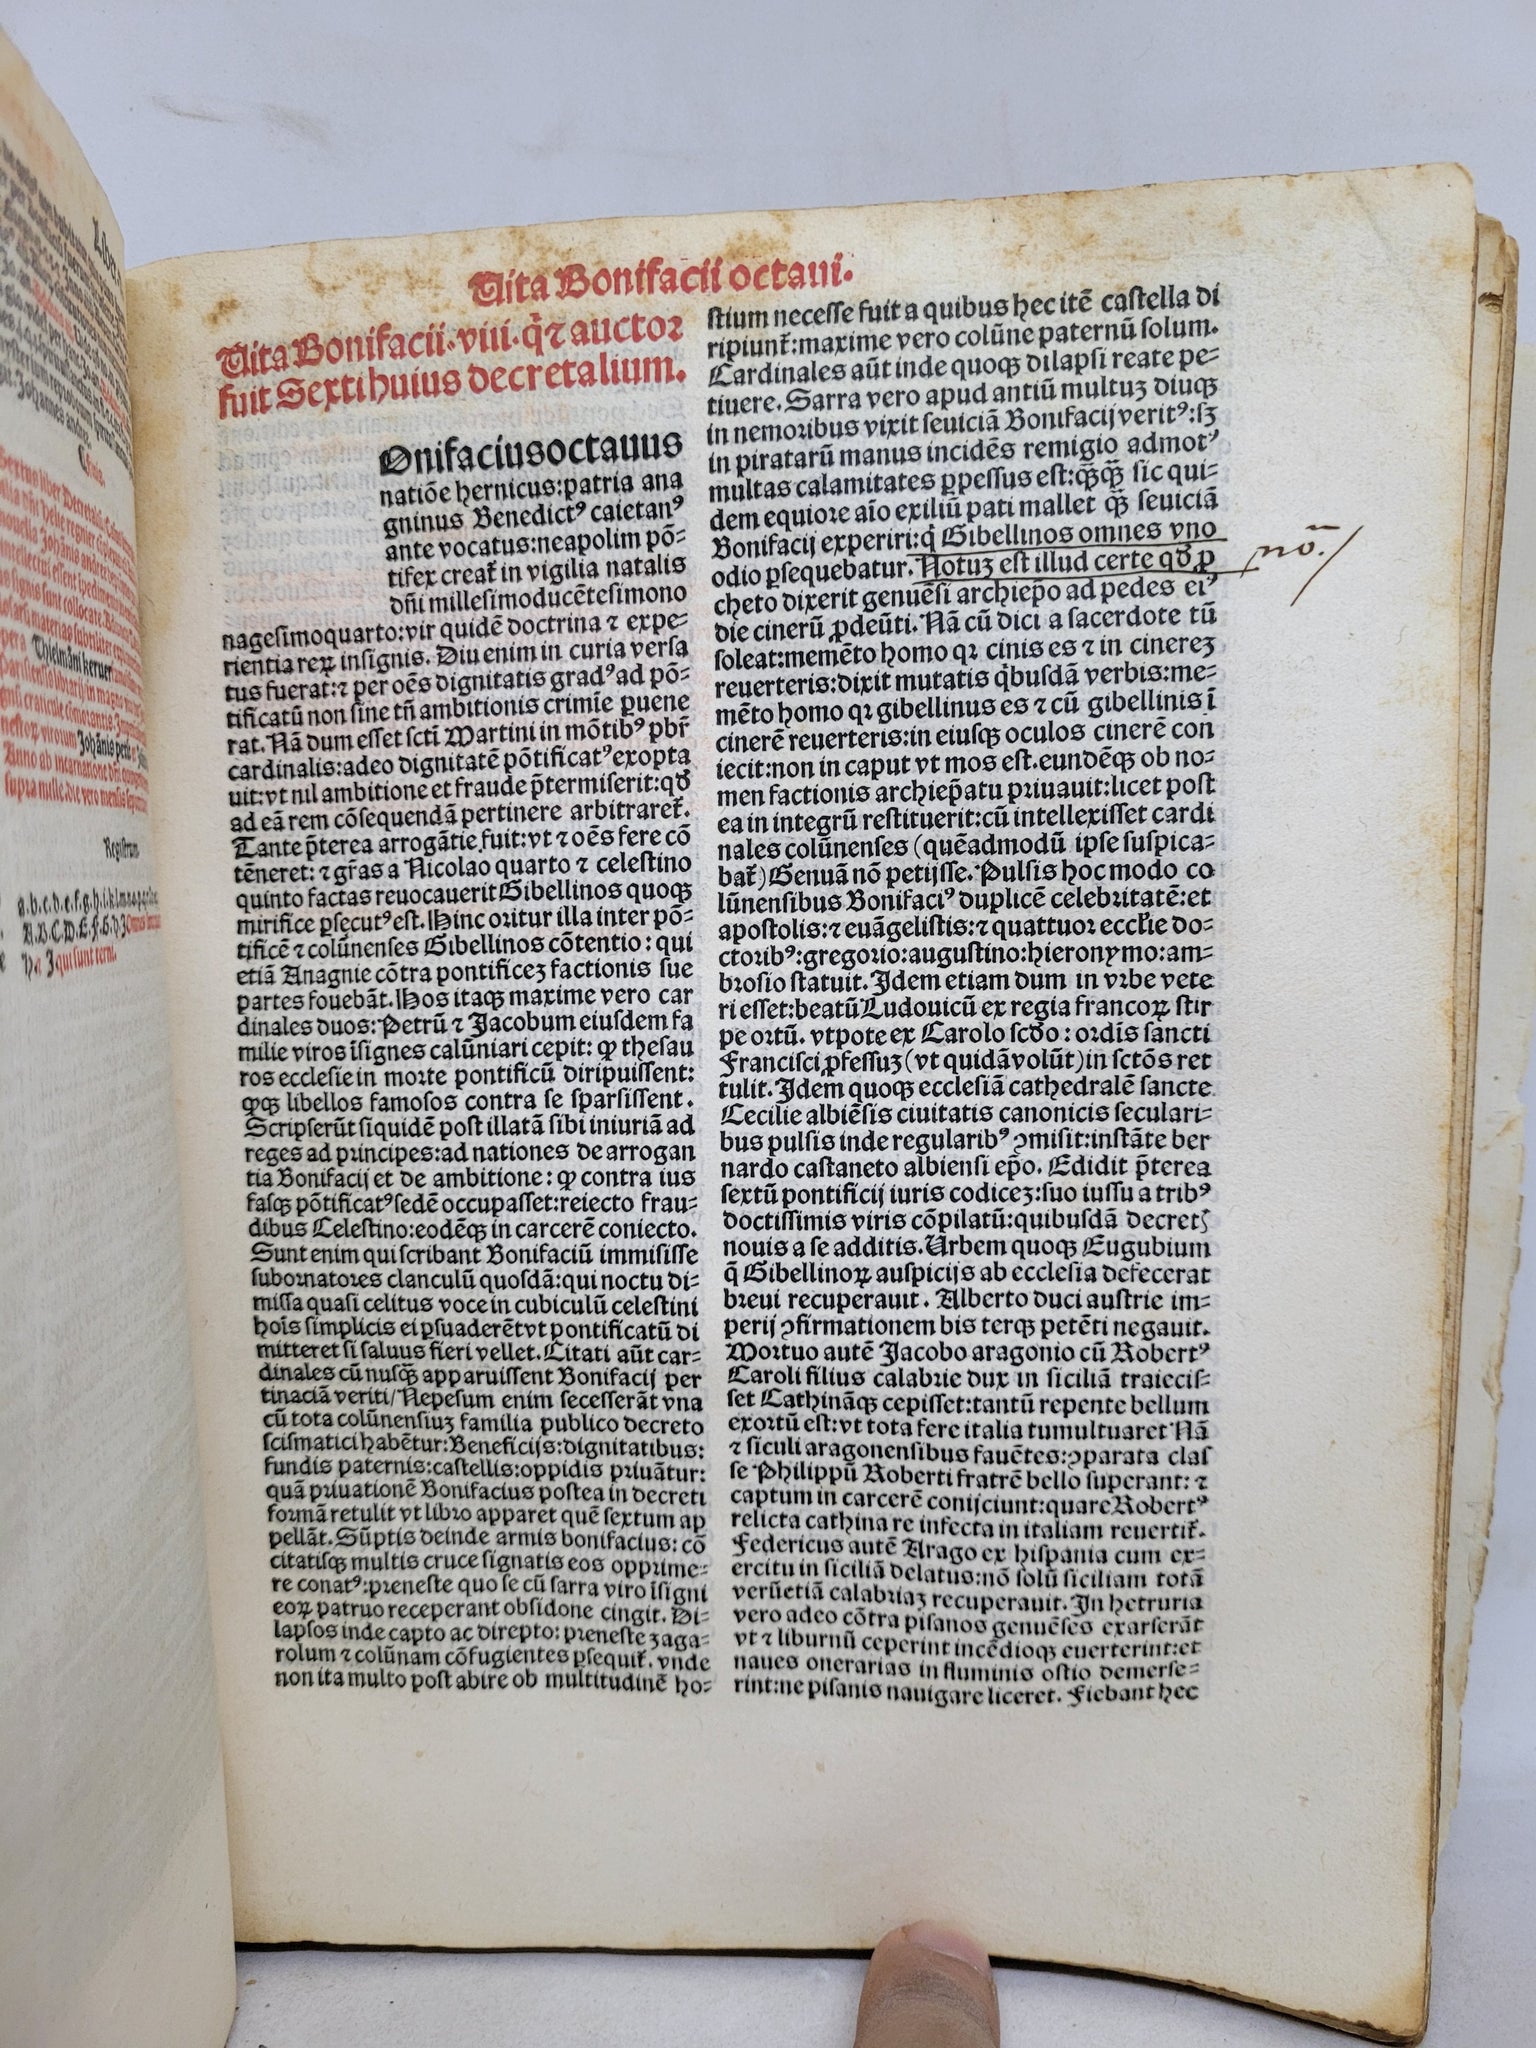 Vita Bonifacii octaui.
Vita Bonifacii·viii·q̃ ⁊ auctor
fuit Sexti huius decretalium.
Onifacius octauus
natiõe hernicus:patria ana
gninus Benedictꝰ caietanꝰ
ante vocatus:neapolim põ⸗
tifex creat᷑ in vigilia natalis
dñi millesimoducẽtesimono
nagesimoquarto:vir quidẽ doctrina ⁊ expe⸗
rientia reꝝ insignis. Diu enim in curia versa
tus fuerat:⁊ per oẽs dignitatis gradꝰ ad põ⸗
tificatũ non sine tñ ambitionis crimie ꝑuene
rat. Nã dum esset scti Martini in mõtibꝰ pbr̃
cardinalis:adeo dignitatẽ põtificatꝰ exopta
uit:vt nil ambitione et fraude p̃termiserit:qđ
ad eã rem cõsequendã pertinere arbitraret᷑.
Tante p̃terea arrogãtie fuit:vt ⁊ oẽs fere cõ
tẽneret: ⁊ gr̃as a Nicolao quarto ⁊ celestino
quinto factas reuocauerit Gibellinos quoqꝫ
mirifice ꝑsecutꝰ est. Hinc oritur illa inter põ⸗
tificẽ ⁊ colũnenses Gibellinos cõtentio: qui
etiã Anagnie cõtra pontificeꝫ factionis sue
partes fouebãt. Hos itaqꝫ maxime vero car
dinales duos: Petrũ ⁊ Jacobum eiusdem fa
milie viros ĩsignes calũniari cepit: ꝙ thesau
ros ecclesie in morte pontificũ diripuissent:
ꝙqꝫ libellos famosos contra se sparsissent.
Scripserũt siquidẽ post illatã sibi iniuriã ad
reges ad principes:ad nationes de arrogan
tia Bonifacij et de ambitione: ꝙ contra ius
fasqꝫ põtificatꝰ sedẽ occupasset:reiecto frau⸗
dibus Celestino:eodẽqꝫ in carcerẽ coniecto.
Sunt enim qui scribant Bonifaciũ immisisse
subornatores clanculũ quosdã:qui noctu di⸗
missa quasi celitus voce in cubiculũ celestini
hoĩs simplicis ei ꝑsuaderẽt vt pontificatũ di
mitteret si saluus fieri vellet. Citati aũt car⸗
dinales cũ nusq̃ apparuissent Bonifacij per
tinaciã veriti/Nepesum enim secesserãt vna
cũ tota colũnensiuꝫ familia publico decreto
scismatici habẽtur:Beneficijs:dignitatibus:
fundis paternis:castellis:oppidis priuãtur:
quã priuationẽ Bonifacius postea in decreti
formã retulit vt libro apparet quẽ sextum ap
pellãt. Sũptis deinde armis bonifacius: cõ
citatisqꝫ multis cruce signatis eos opprime⸗
re conatꝰ:preneste quo se cũ sarra viro ĩsigni
eoꝝ patruo receperant obsidone cingit. Di⸗
lapsos inde capto ac direpto: preneste zaga⸗
rolum ⁊ colũnam cõfugientes ꝑsequit᷑. vnde
non ita multo post abire ob multitudinẽ ho⸗
stium necesse fuit a quibus hec itẽ castella di
ripiunt᷑:maxime vero colũne paternũ solum.
Cardinales aũt inde quoqꝫ dilapsi reate pe⸗
tiuere. Sarra vero apud antiũ multuꝫ diuqꝫ
in nemoribus vixit seuiciã Bonifacij veritꝰ:sꝫ
in piratarũ manus incidẽs remigio admotꝰ
multas calamitates ꝑpessus est:q̃q̃ sic qui⸗
dem equiore aĩo exiliũ pati mallet q̃ seuiciã
Bonifacij experiri:q̇ Gibellinos omnes vno
odio ꝑsequebatur. Notuꝫ est illud certe qđ ꝓ
cheto dixerit genuẽsi archiep̃o ad pedes eiꝰ
die cinerũ ꝓdeũti. Nã cũ dici a sacerdote tũ
soleat:memẽto homo qꝛ cinis es ⁊ in cinereꝫ
reuerteris:dixit mutatis q̇busdã verbis:me⸗
mẽto homo qꝛ gibellinus es ⁊ cũ gibellinis ĩ
cinerẽ reuerteris:in eiusqꝫ oculos cinerẽ con
iecit:non in caput vt mos est.eundẽqꝫ ob no⸗
men factionis archiep̃atu priuauit:licet post
ea in integrũ restituerit:cũ intellexisset cardi
nales colũnenses (quẽadmodũ ipse suspica⸗
bat᷑) Genuã nõ petijsse. Pulsis hoc modo co
lũnensibus Bonifaciꝰ duplicẽ celebritatẽ:et
apostolis:⁊ euãgelistis:⁊ quattuor eccłie do⸗
ctoribꝰ:gregorio:augustino:hieronymo:am⸗
brosio statuit. Jdem etiam dum in vrbe vete
ri esset:beatũ Ludouicũ ex regia francoꝝ stir
pe ortũ. vtpote ex Carolo scđo: ordĩs sancti
Francisci ꝓfessuꝫ (vt quidã volũt) in sctõs ret
tulit. Jdem quoqꝫ ecclesiã cathedralẽ sancte
Cecilie albiẽsis ciuitatis canonicis seculari⸗
bus pulsis inde regularibꝰ ꝯmisit:instãte ber
nardo castaneto albiensi ep̃o. Edidit p̃terea
sextũ pontificij iuris codiceꝫ:suo iussu a tribꝰ
doctissimis viris cõpilatũ:quibusdã decretꝭ
nouis a se additis. Urbem quoqꝫ Eugubium
q̃ Gibellinoꝝ auspicijs ab ecclesia defecerat
breui recuperauit. Alberto duci austrie im⸗
perij ꝯfirmationem bis terqꝫ petẽti negauit.
Mortuo autẽ Jacobo aragonio cũ Robertꝰ
Caroli filius calabrie dux in siciliã traiecis⸗
set Cathinãqꝫ cepisset:tantũ repente bellum
exortũ est:vt tota fere italia tumultuaret Nã
⁊ siculi aragonensibus fauẽtes:ꝯparata clas
se Philippũ Roberti fratrẽ bello superant: ⁊
captum in carcerẽ conijciunt:quare Robertꝰ
relicta cathina re infecta in italiam reuertit᷑.
Federicus autẽ Arago ex hispania cum ex⸗
ercitu in siciliã delatus:nõ solũ siciliam totã
verũetiã calabriaꝫ recuperauit. Jn hetruria
vero adeo cõtra pisanos genuẽses exarserãt
vt ⁊ liburnũ ceperint incẽdioqꝫ euerterint:et
naues onerarias in fluminis ostio demerse⸗
rint:ne pisanis nauigare liceret. Fiebant hec
nõ.
Registrum